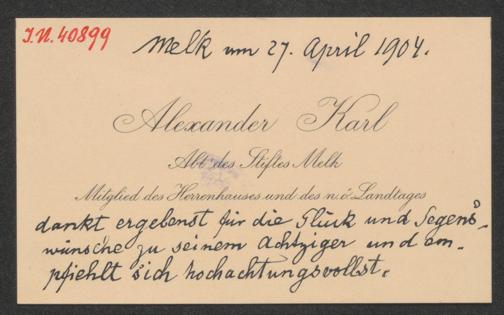 J.N. 40899
Melk am 27. April 1904.
Alexander Karl
Abt des Stiftes Melk
Mitglied des Herrenhauses und des n.ö. Landtages
dankt ergebenst für die Glück und Segens-
wünsche zu seinem Achtziger und em-
pfiehlt sich hochachtungsvollst.